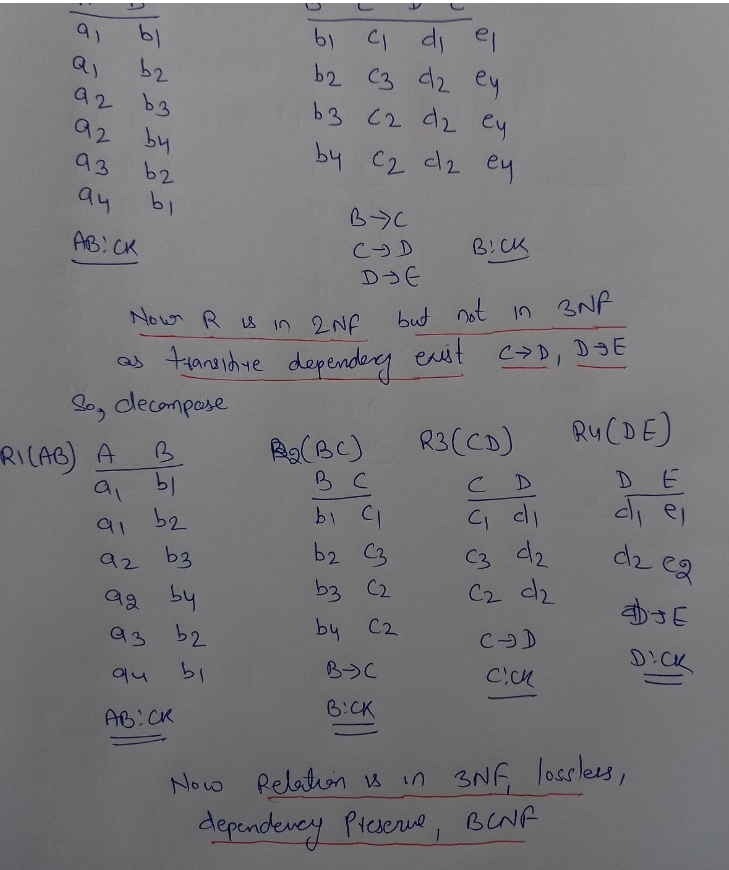 A B
a1 b1
a1 b2
a2 b3
a2 b4
a3 b2
a4 b1
AB:CK
B C D E
b1 c1 d1 e1
b2 c3 d2 e4
b3 c2 d2 e4
b4 c2 d2 e4
B→C
C→D
D→E
B:CK
Now R is in 2NF but not in 3NF
as transitive dependency exist C→D, D→E
So, decompose
R1(AB)
A B
a1 b1
a1 b2
a2 b3
a2 b4
a3 b2
a4 b1
AB:CK
R2(BC)
B C
b1 c1
b2 c3
b3 c2
b4 c2
B→C
B:CK
R3(CD)
C D
c1 d1
c3 d2
c2 d2
C→D
C:CK
R4(DE)
D E
d1 e1
d2 e2
D→E
D:CK
Now Relation is in 3NF, lossless,
dependency Preserve, BCNF